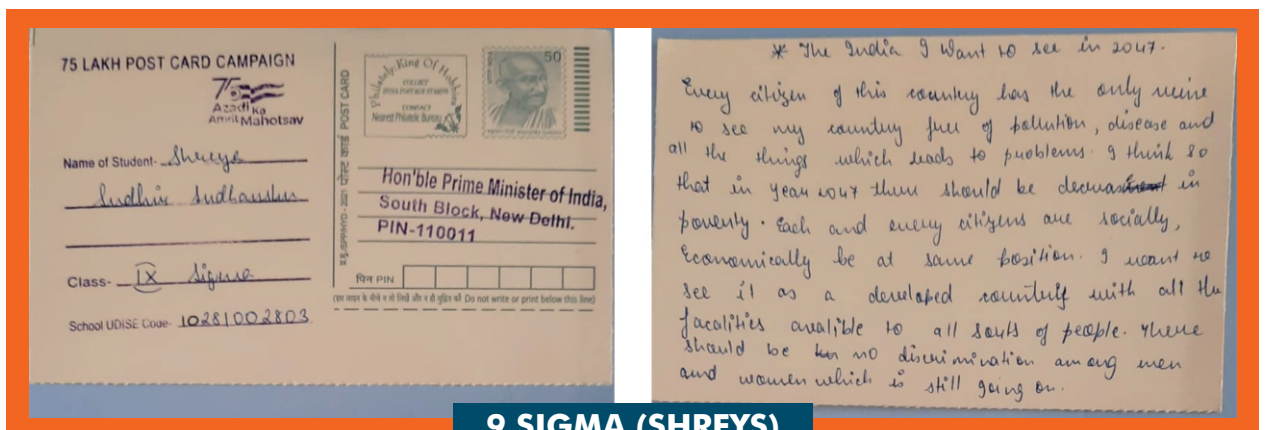 75 LAKH POST CARD CAMPAIGN
75
Azadi Ka
Amrit Mahotsav
Name of Student- Shreys
Sudhir Sudhanshu
Class- IX Sigma
School UDISE Code- 10281002803
पोस्ट कार्ड POST CARD
Philately King Of Hobbies
COLLECT
INDIA POSTAGE STAMPS
CONTACT
Nearest Philatelic Bureau
50
Hon'ble Prime Minister of India,
South Block, New Delhi.
PIN-110011
पिन PIN
(इस लाइन के नीचे न तो लिखें और न ही मुद्रित करें Do not write or print below this line)
* The India I want to see in 2047.
Every citizen of this country has the only
to see my country free of pollution, disease and
all the things which leads to problems. I think so
that in year 2047 there should be decrease in
poverty. Each and every citizens are socially,
Economically be at same position. I want to
see it as a developed country with all the
facalities avalible to all sorts of people. There
should be no discrimination among men
and women which is still going on.
9 SIGMA (SHREYS)